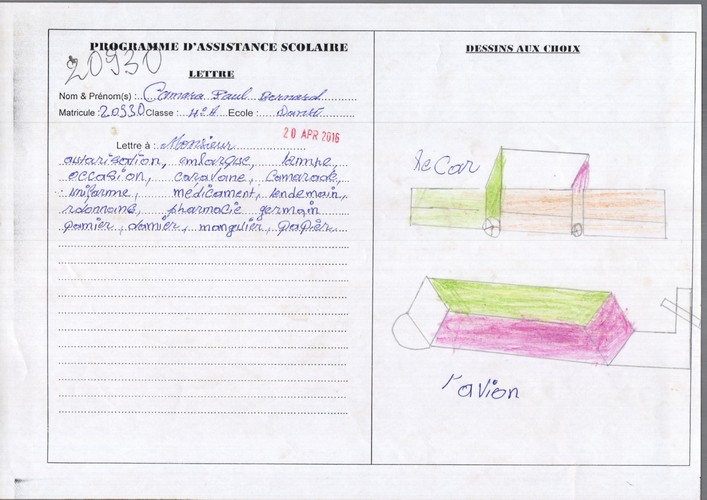 PROGRAMME D'ASSISTANCE SCOLAIRE
20930
LETTRE
Nom & Prénom(s) : Camara Paul Bernard
Matricule : 20930 Classe : Ecole :
20 APR 2016
Lettre à : Monsieur
autorisation, embarque, lampe,
occasion, caravane, camarade,
uniforme, médicament, lendemain,
pharmacie germain
pamier, damier, manguier, papier
DESSINS AUX CHOIX
le Car
l'avion